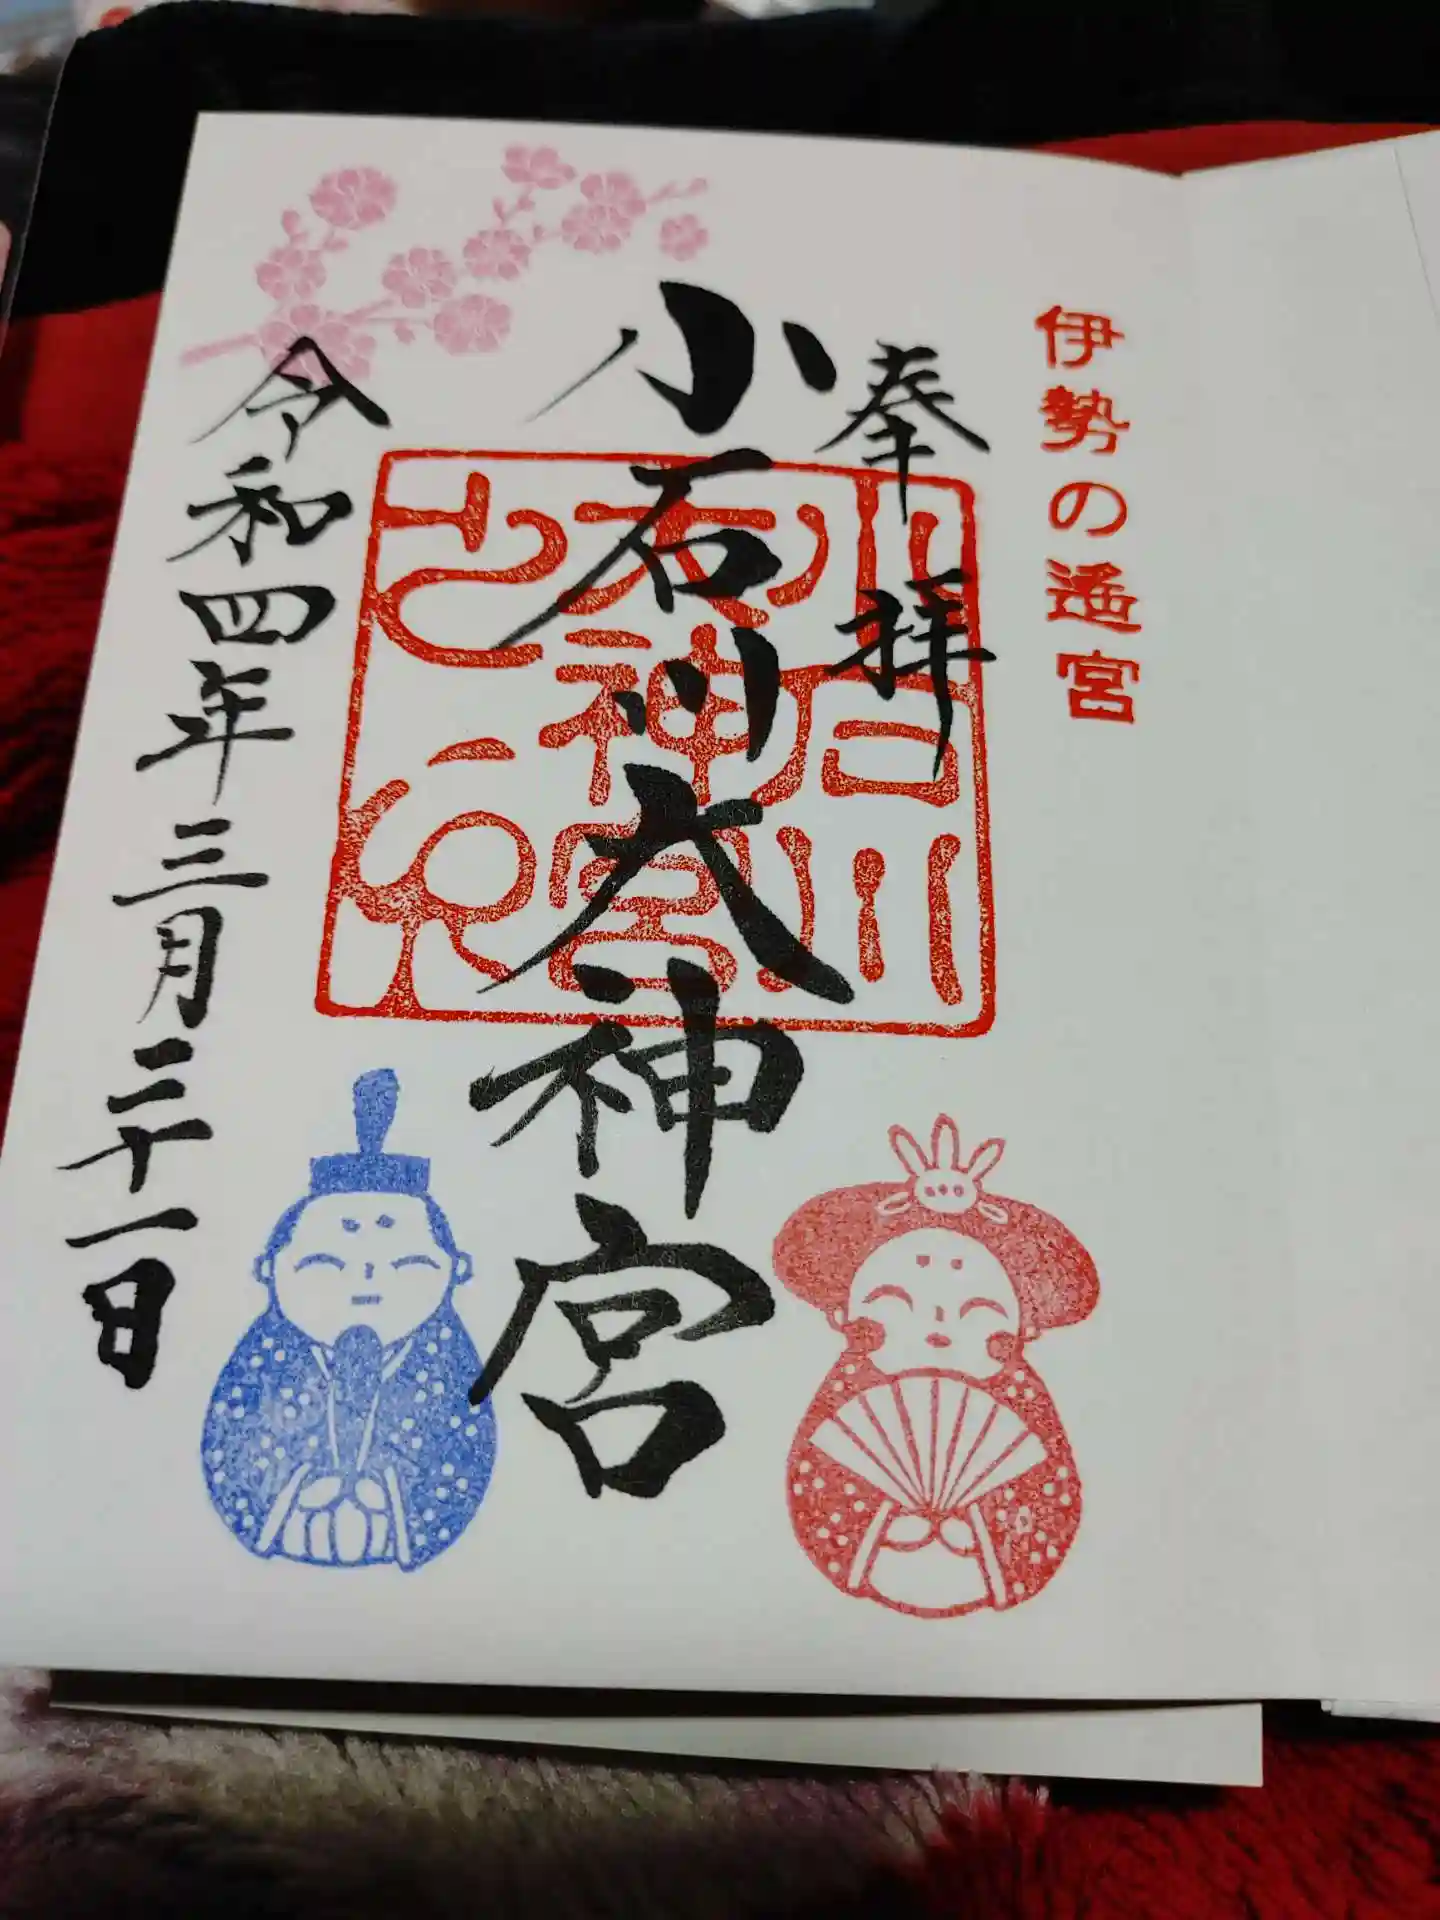 伊勢の遙宮
奉拝
小石川大神宮
小石川
大神宮
令和四年三月二十一日